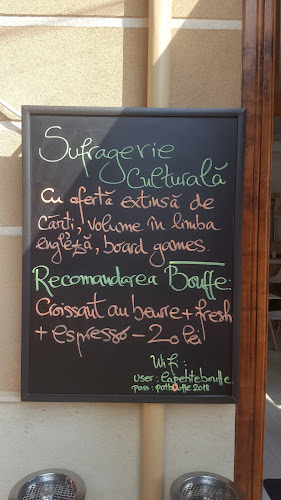 Sufragerie
Culturală
Cu ofertă extinsă de
cărți, volume în limba
engleză, board games.
Recomandarea Bouffe:
Croissant au beurre + fresh
+ espresso - 20 lei
Wifi:
user: lapetitebouffe
pass: potbouffe2018